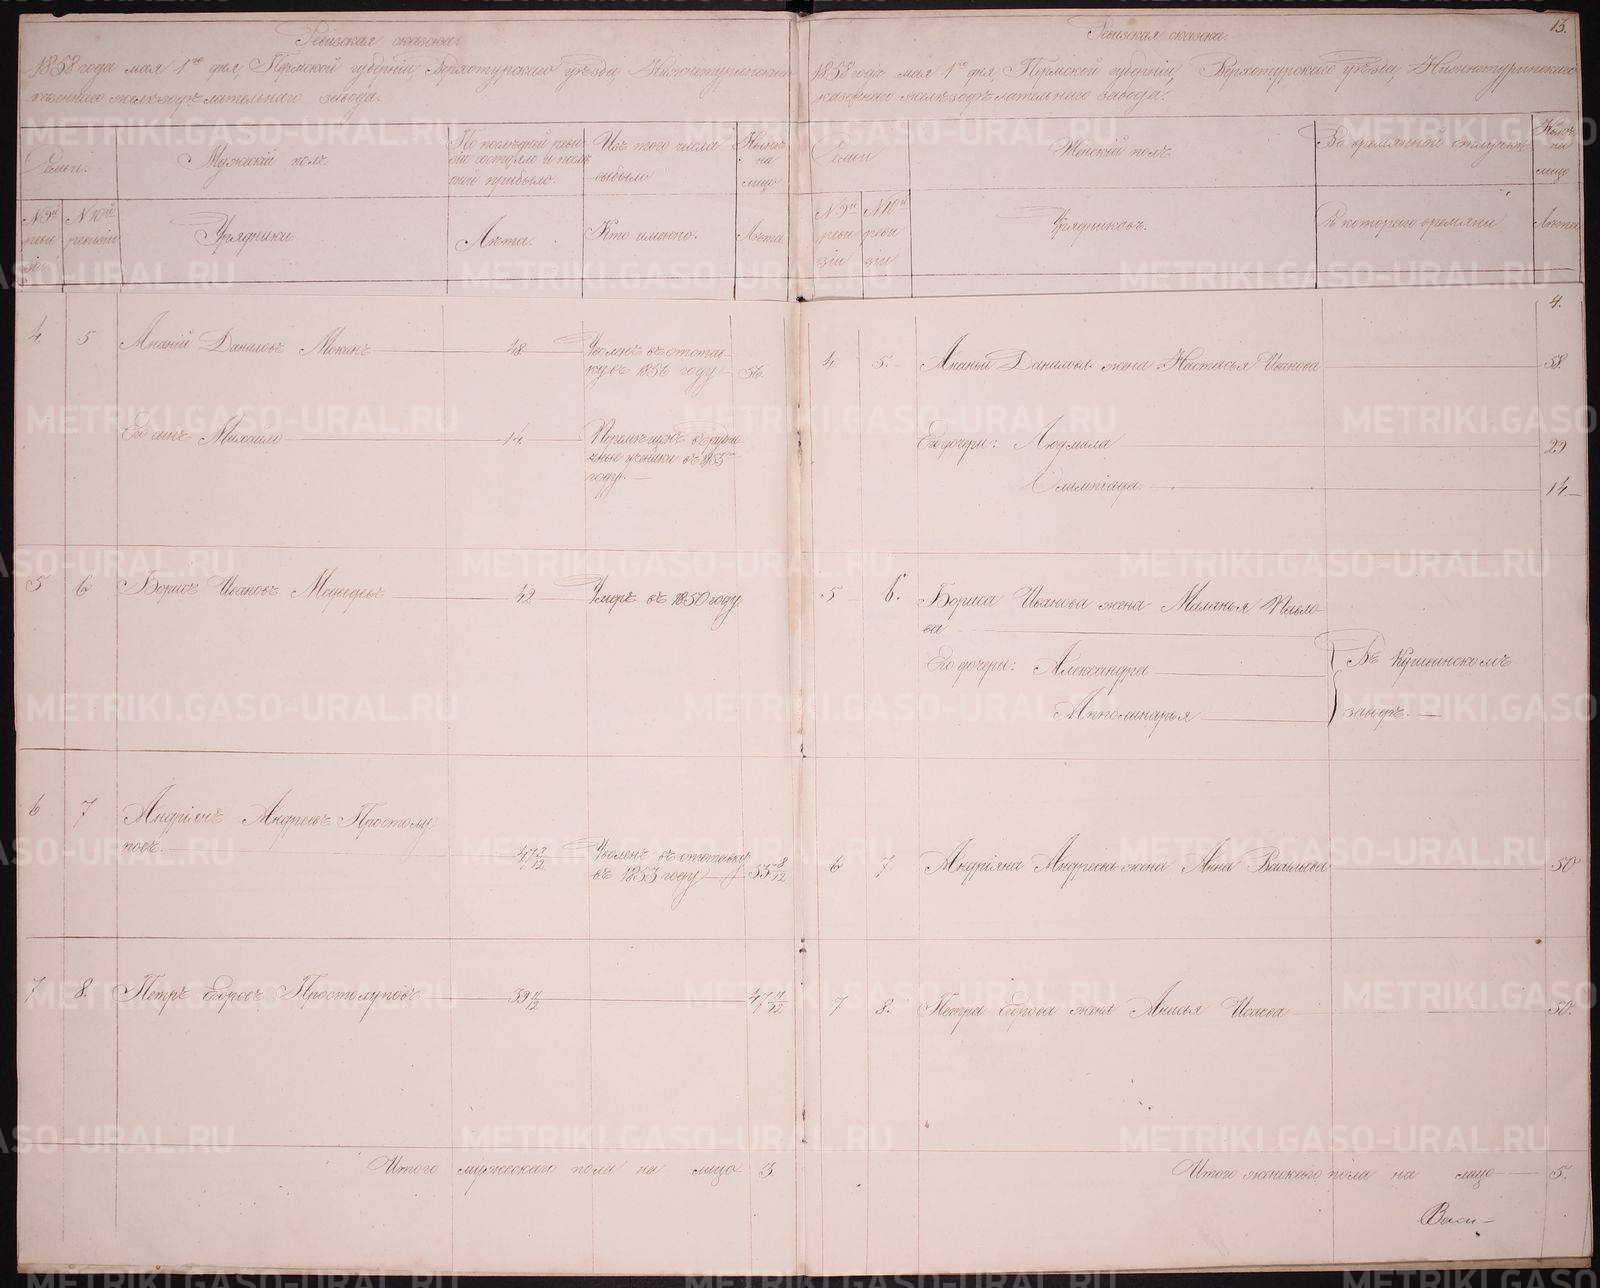 13.
Ревизская сказка.
1858 года мая 1го дня, Пермской губерніи, Верхотурскаго уѣзда, Нижнетуринскаго
казеннаго желѣзодѣлательнаго завода.
Семьи.
Мужескій полъ
По послѣдней реви-
зіи состояло и послѣ
той прибыло.
Изъ того числа
выбыло
Нынѣ
на
лицо
№ 9й
реви
зіи
№ 10ой
ревизіи
Урядники
Лѣта.
Кто именно.
Лѣта
4.
5
Ананій Даниловъ Мокан
48
Уволенъ въ отстав-
ку въ 1856 году
56.
Его сынъ Михаило
14.
Перемѣщенъ в
ученики въ 1855м
году.
5
6
Борисъ Ивановъ Медведевъ
42
Умеръ въ 1850 году
6
7
Андріянъ Андреевъ Простолу
повъ.
47 3/12
Уволенъ въ отставку
въ 1853 году
55 8/12
7
8.
Петръ Егоровъ Простолуповъ
39 11/12
47 11/12
Итого мужескаго пола на лицо 3
Ревизская сказка.
1858 года мая 1го дня, Пермской губерніи, Верхотурскаго уѣзда, Нижнетуринскаго
казеннаго желѣзодѣлательнаго завода.
Семьи
Женскій полъ
Во временной отлучкѣ
Нынѣ
на
лицо
№ 9й
реви
зіи
№ 10ой
реви
зіи
Урядниковъ.
Съ котораго времяни
Лѣта
4.
4
5.
Ананьи Данилова жена Настасья Иванова
58.
Его дочери: Людмила
29
Олимпіада.
14
5
6.
Бориса Иванова жена Маланья Павло-
ва
Его дочери: Александра
Въ Кушвинскомъ
Апполинарья
заводѣ.
6
7.
Андріяна Андреева жена Анна Васильева
50
7
8.
Петра Егорова жена Анисья Исаева
50.
Итого женскаго пола на лицо 5.
Васи-
METRIKI.GASO-URAL.RU